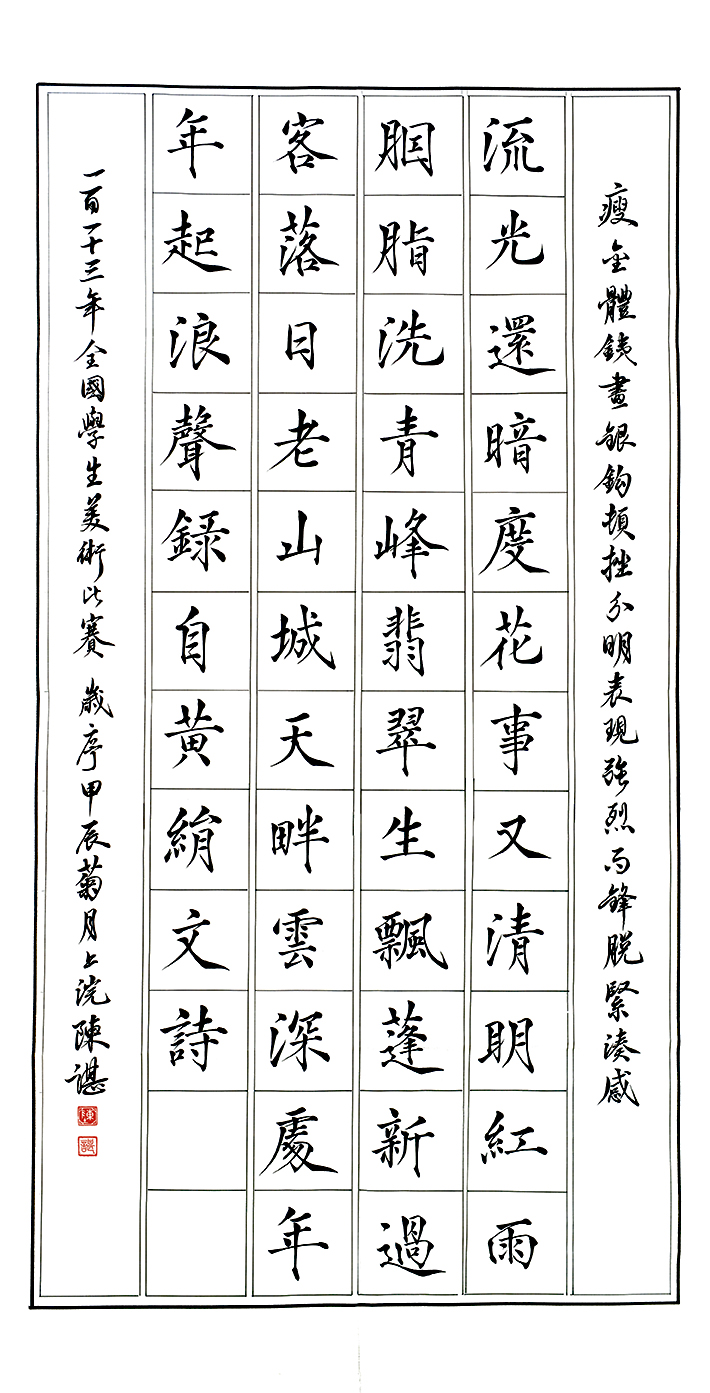 瘦金體鐵畫銀鈎頓挫分明表現強烈而鋒脫緊湊感
流光還暗度花事又清明紅雨
胭脂洗青峰翡翠生飄蓬新過
客落日老山城天畔雲深處年
年起浪聲錄自黃絹文詩
一百一十三年全國學生美術比賽 歲序甲辰菊月上浣陳諶
陳
諶